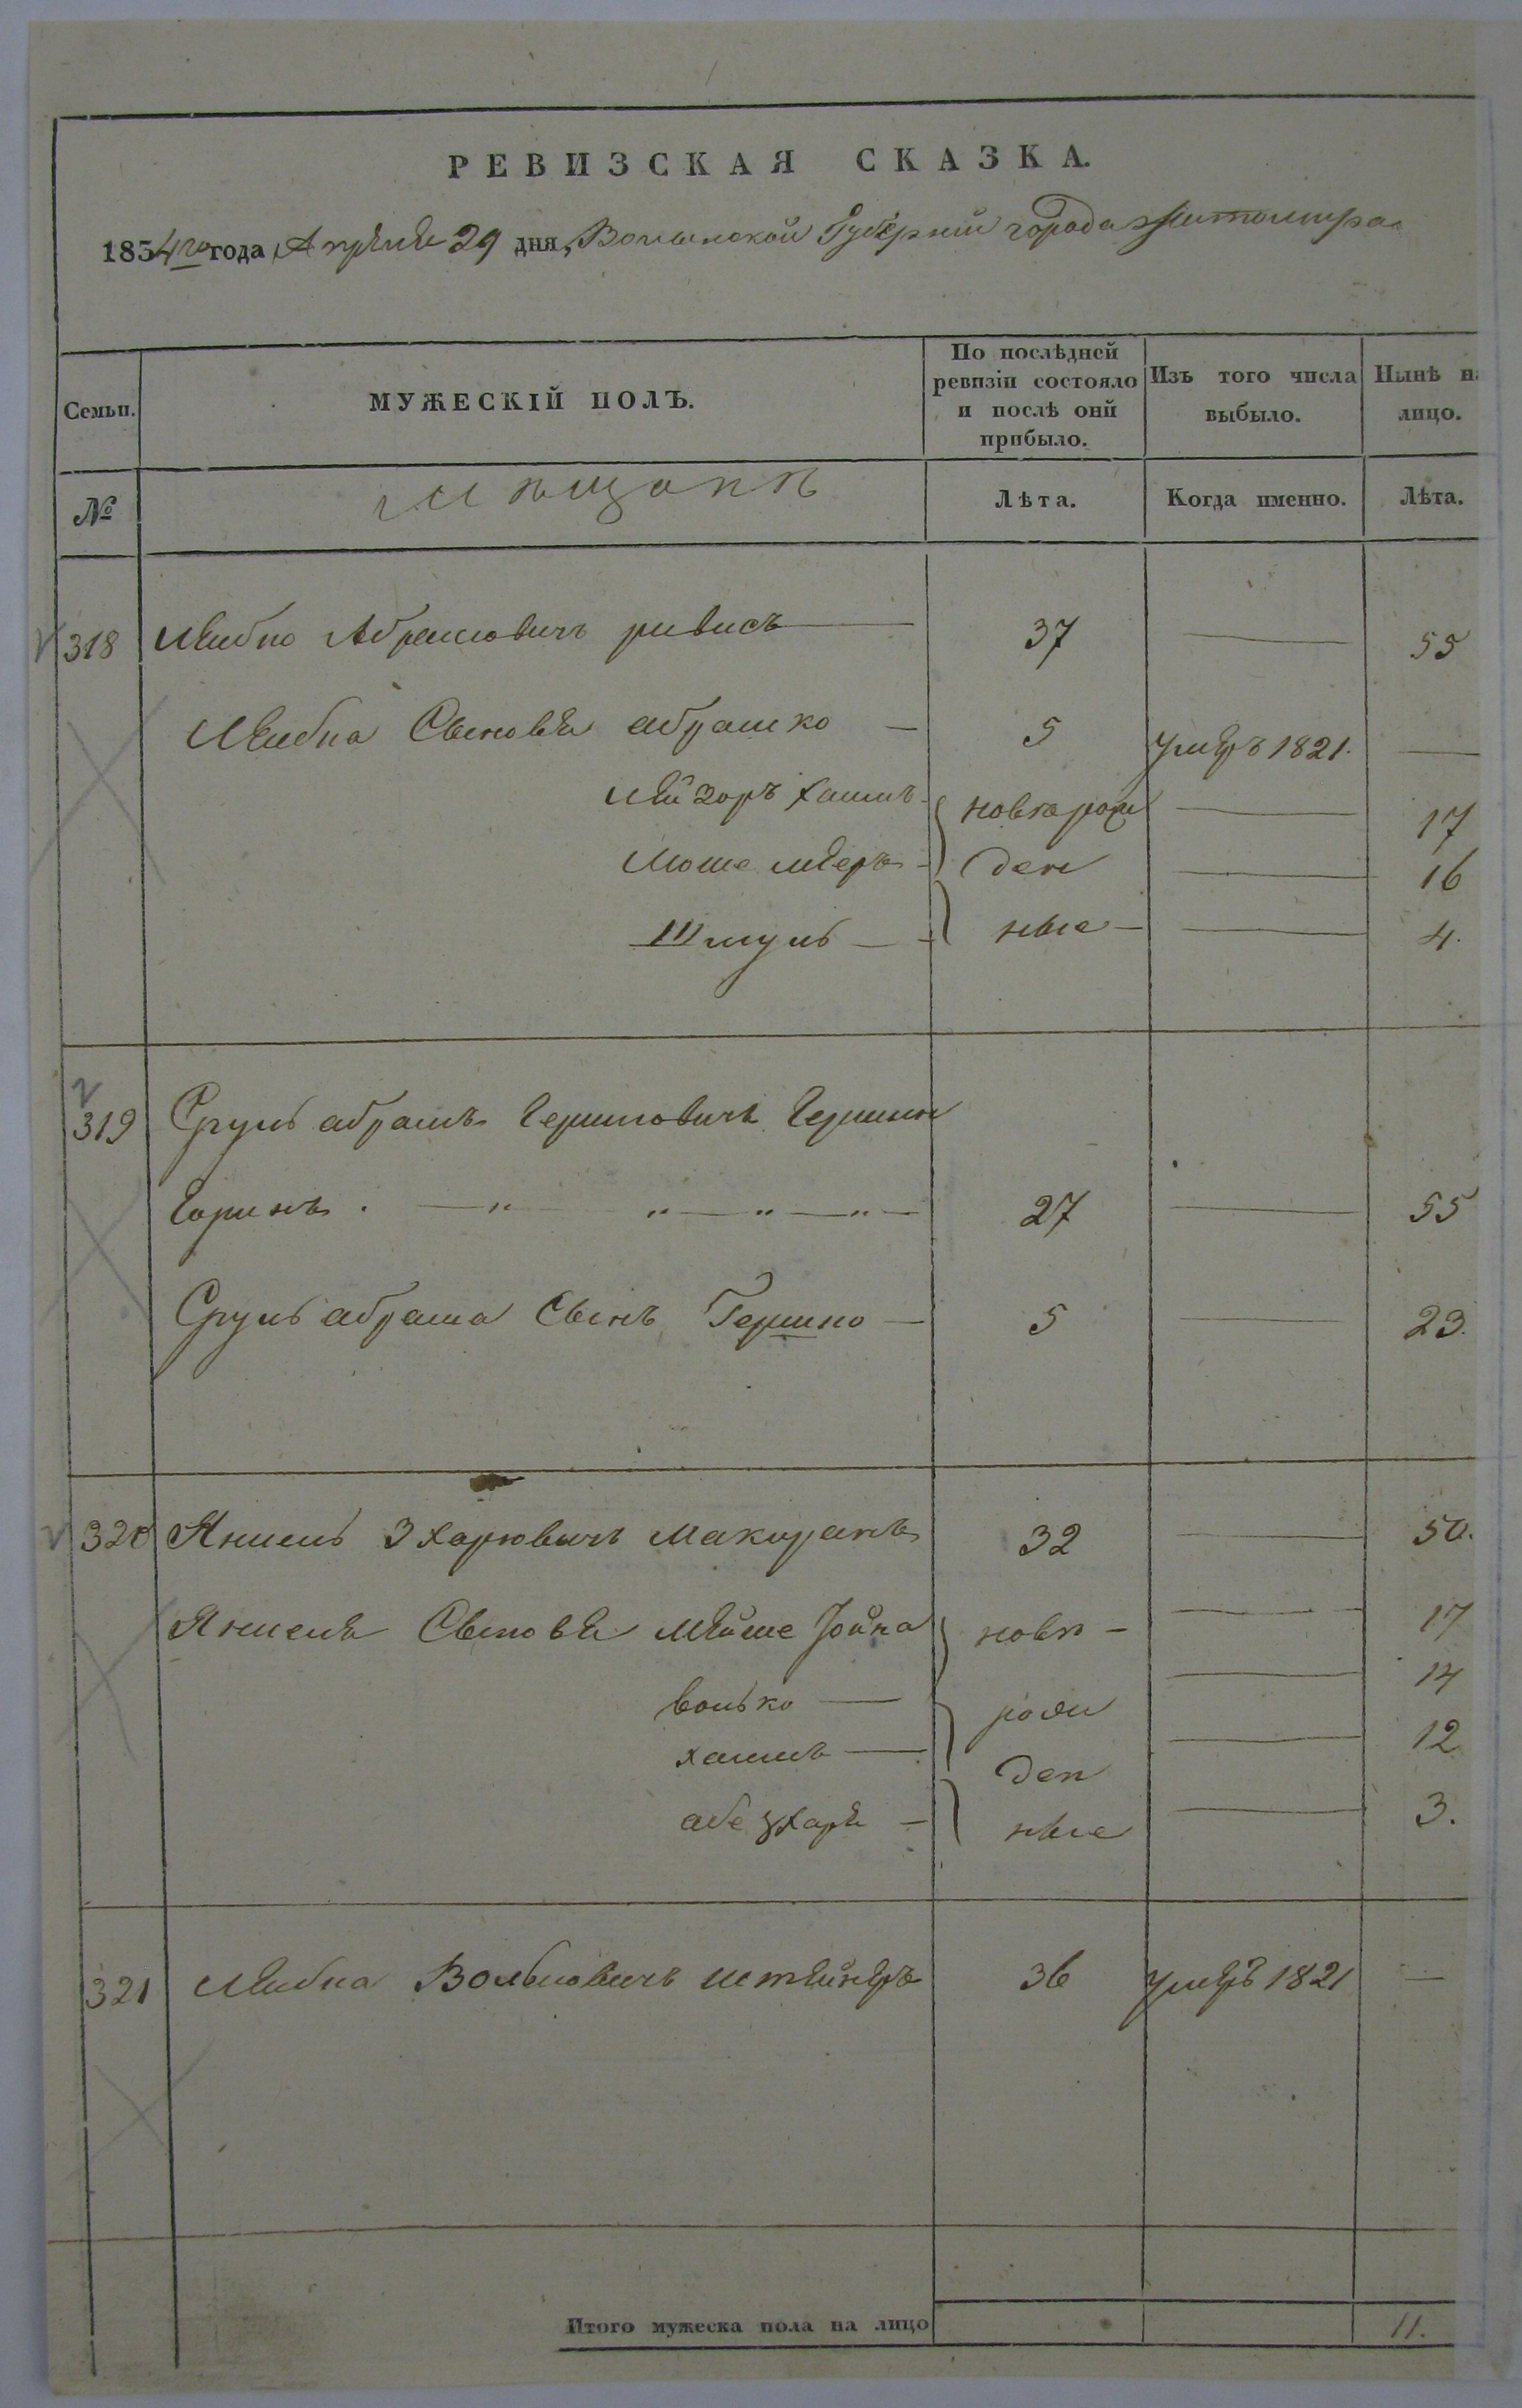 РЕВИЗСКАЯ СКАЗКА.
1834го года Апреля 29 дня, Волынской Губерніи города Житомира
Семьи. МУЖЕСКІЙ ПОЛЪ. По послѣдней ревизіи состояло и послѣ оній прибыло. Изъ того числа выбыло. Нынѣ на лицо.
№ Мѣщанъ Лѣта. Когда именно. Лѣта.
318 Лейбко Абрамовичъ ривисъ — 37 — 55
Лейбка Сыновья абрамко — 5 умеръ 1821. —
Лейзоръ хаимъ новорож — 17
Моше мееръ ден — 16
Шмуль — ные — 4.
319 Сруль абрамъ Гершковичъ
27 — 55
Сруль абрама Сынъ Гершко — 5 — 23.
320 Янкель Зхарювичъ 32 — 50.
Янкеля Сыновья Мейше новк — — 17
волько — рож — 14
хаимъ — ден — 12
абе зхаря — ные — 3.
321 Лейбка Вольковичъ штейнеръ 36 умеръ 1821 —
Итого мужеска пола на лицо 11.